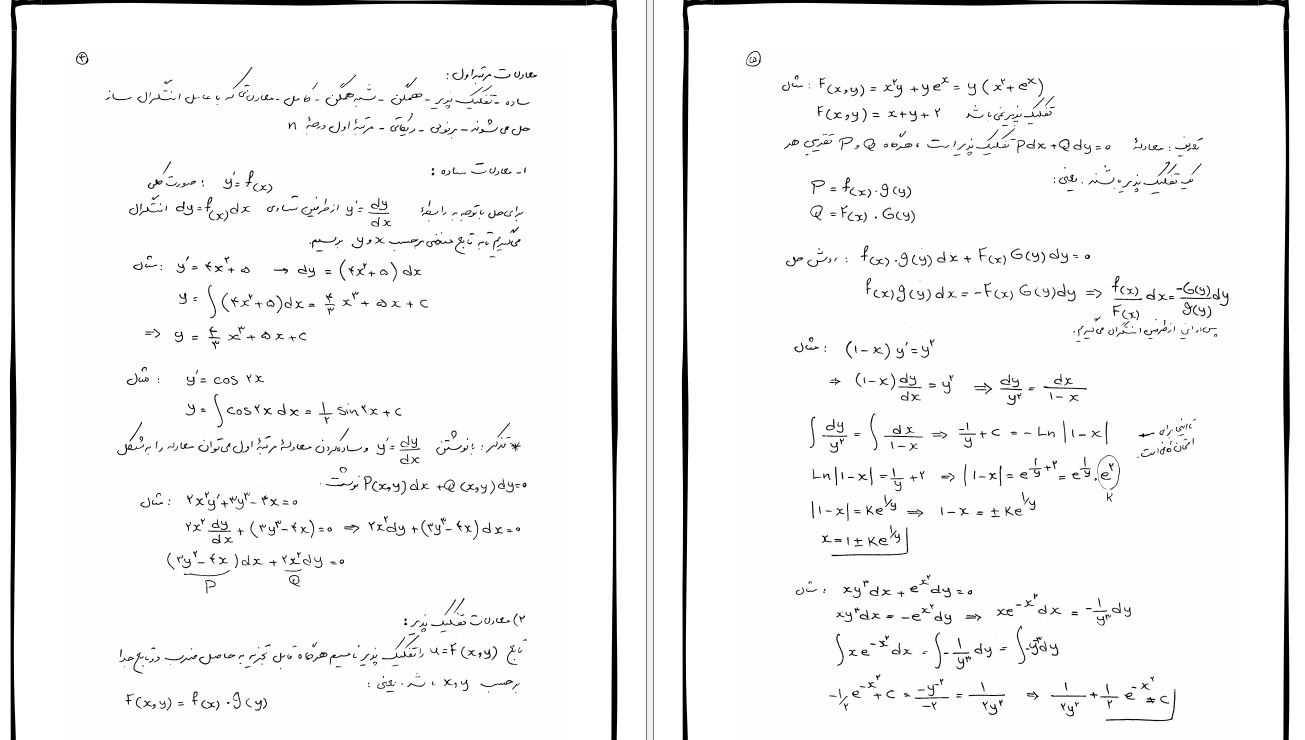 ۴
معادلات مرتبه اول :
ساده - تفکیک پذیر - همگن - شبه همگن - کامل - معادلاتی که با عامل انتگرال ساز
حل می‌شوند - برنولی - ریکاتی - مرتبهٔ اول درجهٔ n
۱- معادلات ساده :
صورت کلی : y' = f(x)
برای حل با توجه به رابطهٔ y' = dy/dx از طرفین تساوی dy = f(x) dx انتگرال
می‌گیریم تا به تابع ضمنی برحسب x و y برسیم.
مثال : y' = ۴x^۲ + ۵ → dy = (۴x^۲ + ۵) dx
y = ∫ (۴x^۲ + ۵) dx = ۴/۳ x^۳ + ۵x + c
⇒ y = ۴/۳ x^۳ + ۵x + c
مثال : y' = cos ۲x
y = ∫ cos ۲x dx = ۱/۲ sin ۲x + c
* تذکر : با نوشتن y' = dy/dx و ساده کردن معادلهٔ مرتبهٔ اول می‌توان معادله را به شکل
P(x,y) dx + Q(x,y) dy = ۰ نوشت.
مثال : ۲x^۲y' + ۳y^۳ - ۴x = ۰
۲x^۲ dy/dx + (۳y^۳ - ۴x) = ۰ ⇒ ۲x^۲ dy + (۳y^۳ - ۴x) dx = ۰
(۳y^۲ - ۴x) dx + ۲x^۲ dy = ۰
P Q
۲) معادلات تفکیک پذیر :
تابع u = F(x,y) را تفکیک پذیر نامیم هرگاه قابل تجزیه به حاصل ضرب دو تابع جدا
برحسب x, y باشد . یعنی :
F(x,y) = f(x) . g(y)
۵
مثال : F(x,y) = x^۲y + ye^x = y (x^۲ + e^x)
F(x,y) = x + y + ۲ تفکیک پذیر نمی‌باشد
تعریف : معادلهٔ Pdx + Qdy = ۰ تفکیک پذیر است ، هرگاه P و Q هر
یک تفکیک پذیر باشند . یعنی :
P = f(x) . g(y)
Q = F(x) . G(y)
روش حل : f(x) . g(y) dx + F(x) G(y) dy = ۰
f(x) g(y) dx = -F(x) G(y) dy ⇒ f(x)/F(x) dx = -G(y)/g(y) dy
پس از این از طرفین انتگرال می‌گیریم.
مثال : (۱-x) y' = y^۲
⇒ (۱-x) dy/dx = y^۲ ⇒ dy/y^۲ = dx/۱-x
∫ dy/y^۲ = ∫ dx/۱-x ⇒ -۱/y + c = -Ln |۱-x| ← تا اینجا برای
امتحان کافی است.
Ln |۱-x| = ۱/y + ۲ ⇒ |۱-x| = e^(۱/y + ۲) = e^(۱/y) . e^۲
K
|۱-x| = Ke^(۱/y) ⇒ ۱-x = ±Ke^(۱/y)
x = ۱ ± Ke^(۱/y)
مثال : xy^۳ dx + e^(x^۲) dy = ۰
xy^۳ dx = -e^(x^۲) dy ⇒ xe^(-x^۲) dx = -۱/y^۳ dy
∫ xe^(-x^۲) dx = ∫ -۱/y^۳ dy = ∫ -y^-۳ dy
-۱/۲ e^(-x^۲) + c = -y^-۲/-۲ = ۱/۲y^۲ ⇒ ۱/۲y^۲ + ۱/۲ e^(-x^۲) = c